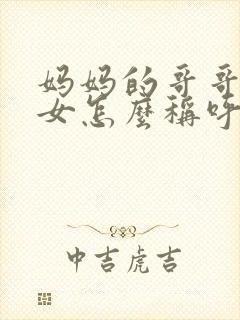 妈妈的哥哥
女怎麼稱呼
中吉虎吉